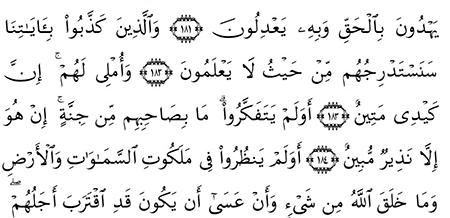 يَهْدُونَ بِٱلْحَقِّ وَبِهِۦ يَعْدِلُونَ ۝١٨١ وَٱلَّذِينَ كَذَّبُوا۟ بِـَٔايَـٰتِنَا
سَنَسْتَدْرِجُهُم مِّنْ حَيْثُ لَا يَعْلَمُونَ ۝١٨٢ وَأُمْلِى لَهُمْ ۚ إِنَّ
كَيْدِى مَتِينٌ ۝١٨٣ أَوَلَمْ يَتَفَكَّرُوا۟ ۗ مَا بِصَاحِبِهِم مِّن جِنَّةٍ ۚ إِنْ هُوَ
إِلَّا نَذِيرٌ مُّبِينٌ ۝١٨٤ أَوَلَمْ يَنظُرُوا۟ فِى مَلَكُوتِ ٱلسَّمَـٰوَٰتِ وَٱلْأَرْضِ
وَمَا خَلَقَ ٱللَّهُ مِن شَىْءٍ وَأَنْ عَسَىٰٓ أَن يَكُونَ قَدِ ٱقْتَرَبَ أَجَلُهُمْ ۖ